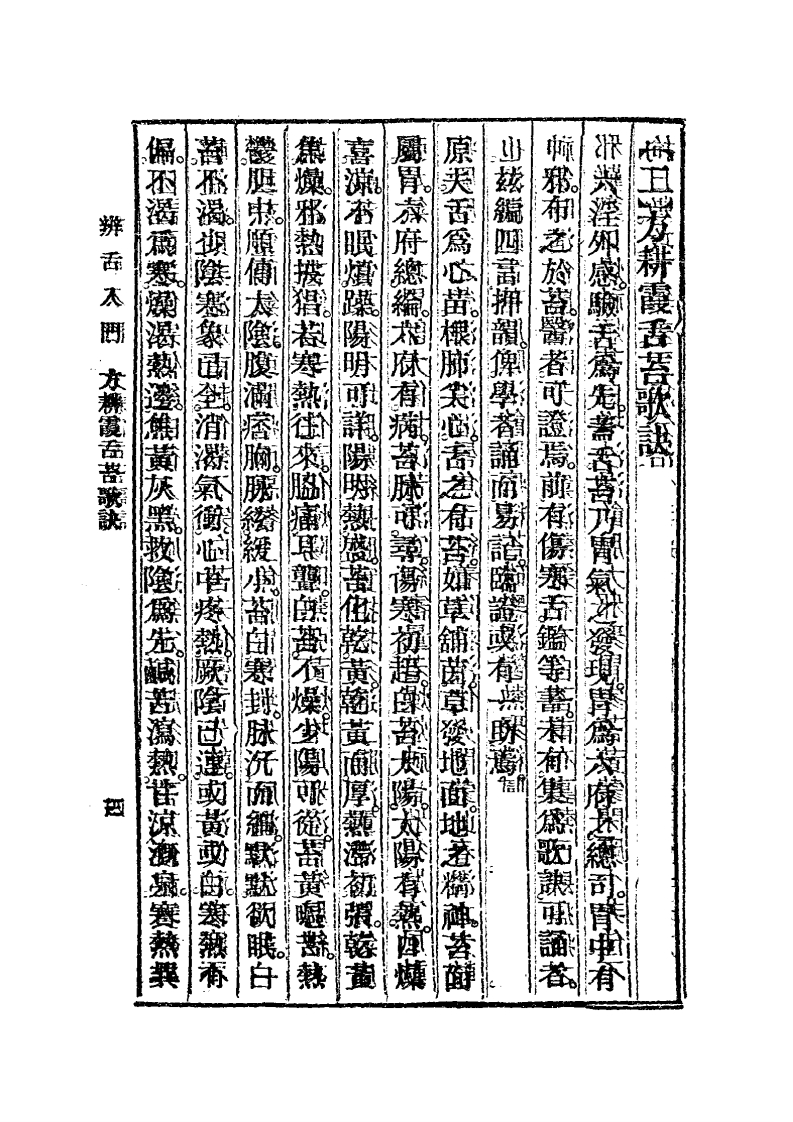 方耕霞舌苔歌訣
六淫外感驗舌爲先蓋舌苔乃胃氣之發現胃爲六府之總司胃中有
邪布之於苔醫者可證焉前有傷寒舌鑑等書未有集爲歌訣可誦者
茲編四言押韻俾學者誦而易記臨證或有一助焉
原夫舌爲心苗根肺尖心舌之有苔如草舖茵草發地面地之精神苔面
屬胃六府總綸六府有病苔脉可尋傷寒初起白苔太陽太陽有熱四燥
喜涼不眠煩躁陽明可詳陽明熱盛苔化乾黃乾黃而厚熱滯初張乾黃
焦燥邪熱披猖若寒熱往來脇痛耳聾白苔不燥少陽可從苔黃嘔苦熱
鬱胆中願傳太陰腹滿痞胸脉緩緩小苔白寒封脉沉而細默默欲眠白
苔不渴少陰寒象已全消渴氣衝心中疼熱厥陰已連或黃或白寒熱有
偏不渴爲寒燥渴熱邊焦黃灰黑救陰爲先鹹苦瀉熱甘涼寒熱異
辨舌入門 方耕霞舌苔歌訣 四